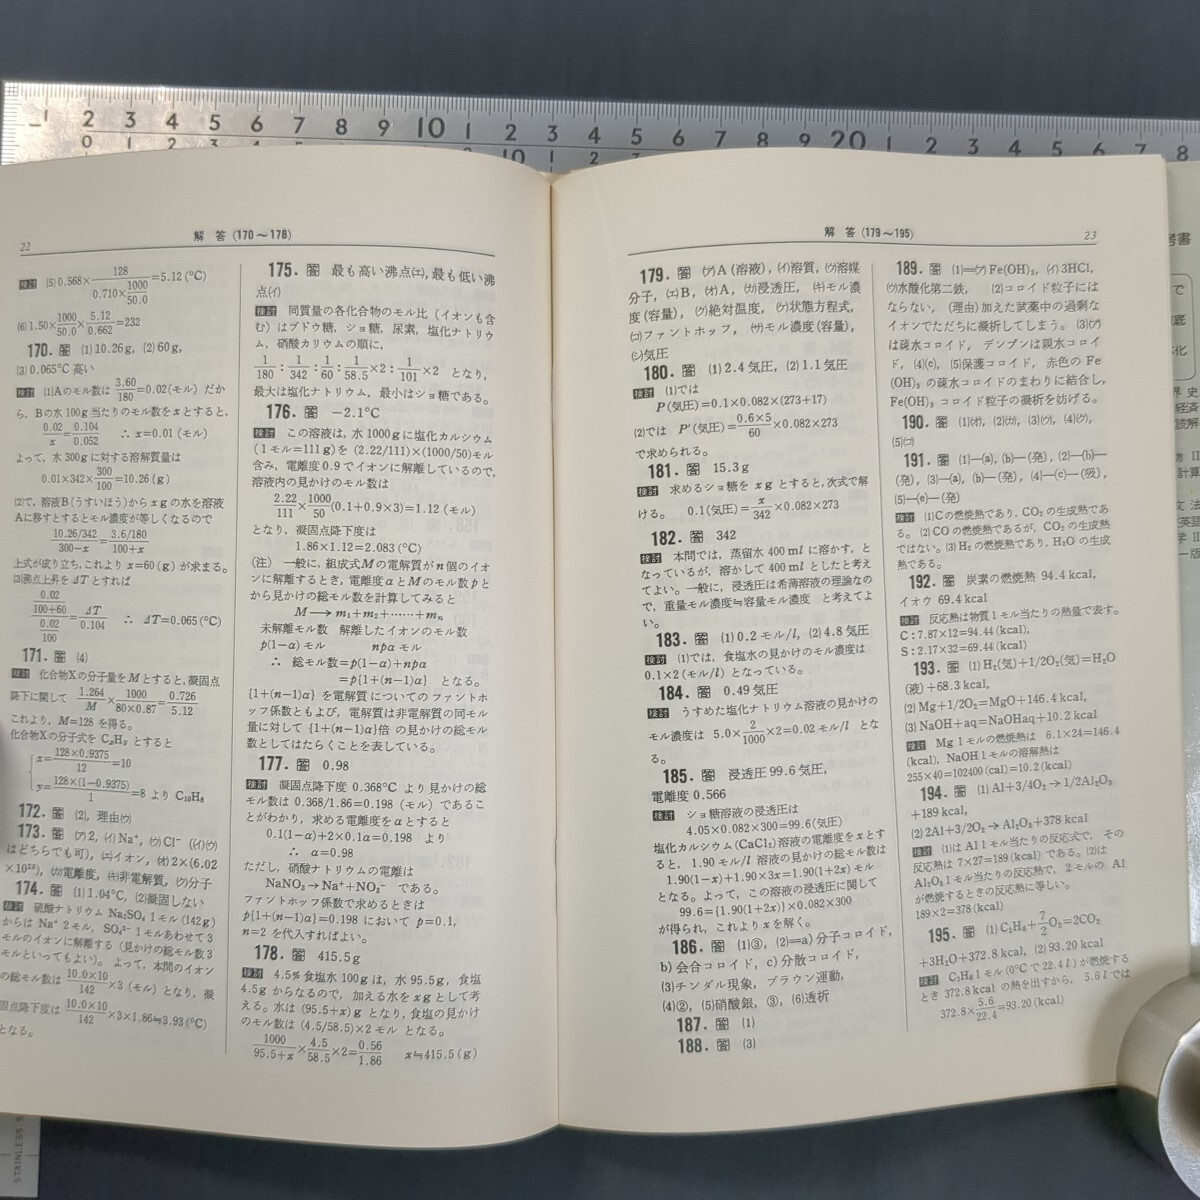 1 2 3 4 5 6 7 8 9 10 1 2 3 4 5 6 7 8 9 20 1 2 3 4 5 6 7 8
22
解 答 (170〜178)
検討 (5) 0.568×128/(0.710×1000/50.0)=5.12(°C)
(6) 1.50×1000/50.0×5.12/0.662=232
170. 答 (1) 10.26g, (2) 60g,
(3) 0.065°C 高い
検討 (1)Aのモル数は 3.60/180=0.02(モル) だか
ら, Bの水100g当たりのモル数をxとすると,
0.02/x=0.104/0.052 ∴ x=0.01 (モル)
よって, 水300gに対する溶解質量は
0.01×342×300/100=10.26(g)
(2)で, 溶液B(うすいほう)からxgの水を溶液
Aに移すとするとモル濃度が等しくなるので
(10.26/342)/(300-x)=(3.6/180)/(100+x)
上式が成り立ち, これより x=60(g) が求まる。
(3)沸点上昇を ΔT とすれば
(0.02/(100+60))/(0.02/100)=ΔT/0.104 ∴ ΔT=0.065(°C)
171. 答 (4)
検討 化合物Xの分子量をMとすると, 凝固点
降下に関して 1.264/M×1000/(80×0.87)=0.726/5.12
これより, M=128 を得る。
化合物Xの分子式を CxHy とすると
x=128×0.9375/12=10
y=128×(1-0.9375)/1=8 より C10H8
172. 答 (2), 理由(ウ)
173. 答 (ア) 2, (イ) Na+, (ウ) Cl- ((イ)(ウ)
はどちらでも可), (エ)イオン, (オ) 2×(6.02
×10²³), (カ)電離度, (キ)非電解質, (ク)分子
174. 答 (1) 1.04°C, (2)凝固しない
検討 硫酸ナトリウム Na2SO4 1モル(142g)
からは Na+ 2モル, SO4²- 1モルあわせて3
モルのイオンに解離する (見かけの総モル数3
モルといってもよい)。よって, 本問のイオン
の総モル数は 10.0×10/142×3(モル)となり, 凝
固点降下度は 10.0×10/142×3×1.86≒3.93(°C)
となる。
175. 答 最も高い沸点(エ), 最も低い沸
点(イ)
検討 同質量の各化合物のモル比 (イオンも含
む) はブドウ糖, ショ糖, 尿素, 塩化ナトリウ
ム, 硝酸カリウムの順に,
1/180 : 1/342 : 1/60 : 1/58.5×2 : 1/101×2 となり,
最大は塩化ナトリウム, 最小はショ糖である。
176. 答 -2.1°C
検討 この溶液は, 水 1000g に塩化カルシウム
(1モル=111g) を (2.22/111)×(1000/50)モル
含み, 電離度 0.9 でイオンに解離しているので,
溶液内の見かけのモル数は
2.22/111×1000/50(0.1+0.9×3)=1.12(モル)
となり, 凝固点降下度は
1.86×1.12=2.083(°C)
(注) 一般に, 組成式Mの電解質がn個のイオ
ンに解離するとき, 電離度αとMのモル数pと
から見かけの総モル数を計算してみると
M→m1+m2+……+mn
未解離モル数 解離したイオンのモル数
p(1-α) モル npα モル
∴ 総モル数=p(1-α)+npα
=p{1+(n-1)α} となる。
{1+(n-1)α} を電解質についてのファントホ
ッフ係数ともよび, 電解質は非電解質の同モル
量に対して {1+(n-1)α}倍 の見かけの総モル
数としてはたらくことを表している。
177. 答 0.98
検討 凝固点降下度 0.368°C より見かけの総
モル数は 0.368/1.86=0.198 (モル) であるこ
とがわかり, 求める電離度をαとすると
0.1(1-α)+2×0.1α=0.198 より
∴ α=0.98
ただし, 硝酸ナトリウムの電離は
NaNO3→Na++NO3- である。
ファントホッフ係数で求めるときは
p{1+(n-1)α}=0.198 において p=0.1,
n=2 を代入すればよい。
178. 答 415.5g
検討 4.5%食塩水100gは, 水 95.5g, 食塩
4.5gからなるので, 加える水をxgとして考
える。水は (95.5+x)g となり, 食塩の見かけ
のモル数は (4.5/58.5)×2モル となる。
1000/(95.5+x)×4.5/58.5×2=0.56/1.86 x≒415.5(g)
解 答 (179〜195)
23
179. 答 (ア) A (溶液), (イ)溶質, (ウ)溶媒
分子, (エ) B, (オ) A, (カ)浸透圧, (キ)モル濃
度(容量), (ク)絶対温度, (ケ)状態方程式,
(コ)ファントホッフ, (サ)モル濃度(容量),
(シ)気圧
180. 答 (1) 2.4 気圧, (2) 1.1 気圧
検討 (1)では
P(気圧)=0.1×0.082×(273+17)
(2)では P'(気圧)=0.6×5/60×0.082×273
で求められる。
181. 答 15.3g
検討 求めるショ糖をxgとすると, 次式で解
ける。 0.1(気圧)=x/342×0.082×273
182. 答 342
検討 本問では, 蒸留水 400ml に溶かす, と
なっているが, 溶かして 400ml としたと考え
てよい。一般に, 浸透圧は希薄溶液の理論なの
で, 重量モル濃度≒容量モル濃度 と考えてよ
い。
183. 答 (1) 0.2 モル/l, (2) 4.8 気圧
検討 (1)では, 食塩水の見かけのモル濃度は
0.1×2(モル/l)となっている。
184. 答 0.49 気圧
検討 うすめた塩化ナトリウム溶液の見かけの
モル濃度は 5.0×2/1000×2=0.02 モル/l とな
る。
185. 答 浸透圧 99.6 気圧,
電離度 0.566
検討 ショ糖溶液の浸透圧は
4.05×0.082×300=99.6(気圧)
塩化カルシウム(CaCl2)溶液の電離度をxとす
ると, 1.90モル/l 溶液の見かけの総モル数は
1.90(1-x)+1.90×3x=1.90(1+2x) モル
となる。よって, この溶液の浸透圧に関して
99.6={1.90(1+2x)}×0.082×300
が得られ, これよりxを解く。
186. 答 (1)③, (2)=a) 分子コロイド,
b) 会合コロイド, c) 分散コロイド,
(3)チンダル現象, ブラウン運動,
(4)②, (5)硝酸銀, ③, (6)透析
187. 答 (1)
188. 答 (3)
189. 答 (1)=(ア) Fe(OH)3, (イ) 3HCl,
(ウ)水酸化第二鉄, (2)コロイド粒子には
ならない, (理由) 加えた試薬中の過剰な
イオンでただちに凝析してしまう。 (3)(ア)
は疎水コロイド, デンプンは親水コロイ
ド, (4)(c), (5)保護コロイド, 赤色の Fe
(OH)3 の疎水コロイドのまわりに結合し,
Fe(OH)3 コロイド粒子の凝析を妨げる。
190. 答 (1)(オ), (2)(カ), (3)(ウ), (4)(ケ),
(5)(コ)
191. 答 (1)—(a), (b)—(発), (2)—(b)—
(発), (3)—(a), (b)—(発), (4)—(c)—(吸),
(5)—(e)—(発)
検討 (1)Cの燃焼熱であり, CO2 の生成熱であ
る。(2) CO の燃焼熱であるが, CO2 の生成熱
ではない。(3) H2 の燃焼熱であり, H2O の生成
熱である。
192. 答 炭素の燃焼熱 94.4kcal,
イオウ 69.4kcal
検討 反応熱は物質1モル当たりの熱量で表す。
C:7.87×12=94.44(kcal),
S:2.17×32=69.44(kcal)
193. 答 (1) H2(気)+1/2O2(気)=H2O
(液)+68.3kcal,
(2) Mg+1/2O2=MgO+146.4kcal,
(3) NaOH+aq=NaOHaq+10.2kcal
検討 Mg 1モルの燃焼熱は 6.1×24=146.4
(kcal), NaOH 1モルの溶解熱は
255×40=102400(cal)=10.2(kcal)
194. 答 (1) Al+3/4O2→1/2Al2O3
+189kcal,
(2) 2Al+3/2O2→Al2O3+378kcal
検討 (1)は Al 1モル当たりの反応式で, その
反応熱は 7×27=189(kcal)である。(2)は
Al2O3 1モル当たりの反応熱で, 2モルの Al
が燃焼するときの反応熱に等しい。
189×2=378(kcal)
195. 答 (1) C2H6+7/2O2=2CO2
+3H2O+372.8kcal, (2) 93.20kcal
検討 C2H6 1モル(0°Cで22.4l)が燃焼する
とき 372.8kcal の熱を出すから, 5.6l では
372.8×5.6/22.4=93.20(kcal)
STAINLESS